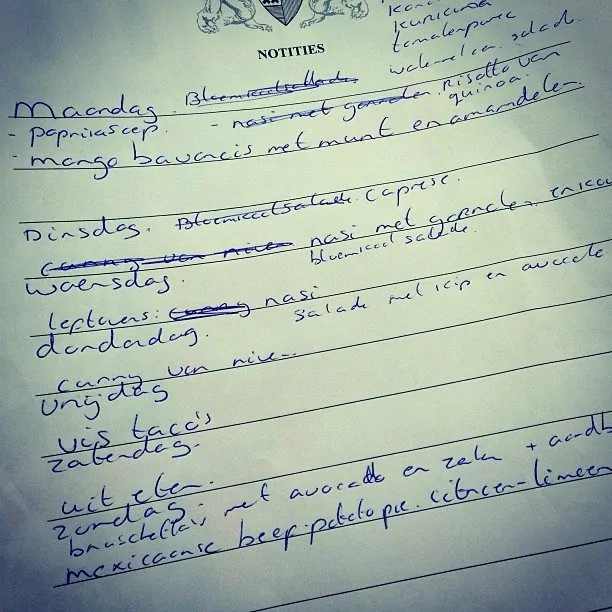 NOTITIES
kurkuma
tomatenpuree
salade
Maandag. Bloemkoolsalade
- paprikasoep. - nasi met garnalen Risotto van quinoa.
- mango bavarois met munt en amandelen
Dinsdag. Bloemkoolsalade. Caprese.
curry van nieu nasi met garnalen en
bloemkool salade.
woensdag.
leftovers: curry nasi
salade met kip en avocado
donderdag.
curry van nieu..
vrijdag
vis taco's
zaterdag.
uit eten.
zondag
bruschetta's met avocado en zalm +
mexicaanse beef.potatopie. citroen-limoen